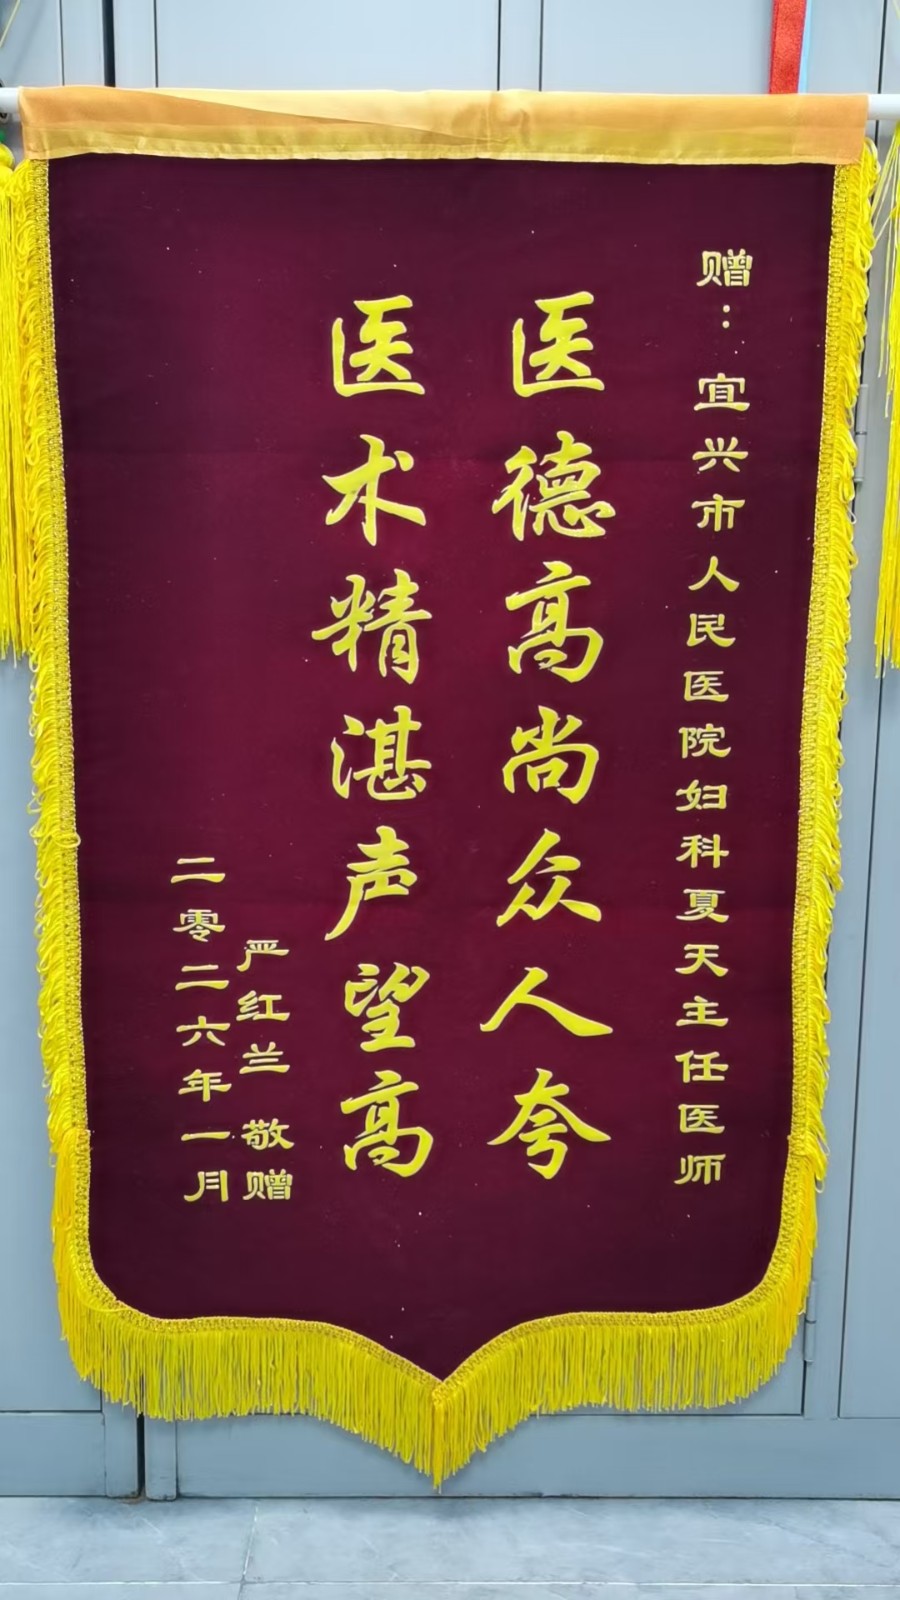 赠：宜兴市人民医院妇科夏天主任医师
医德高尚众人夸
医术精湛声望高
严红兰 敬赠
二零二六年一月